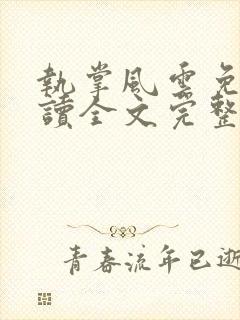 執掌風雲免
讀全文完整
青春流年已逝